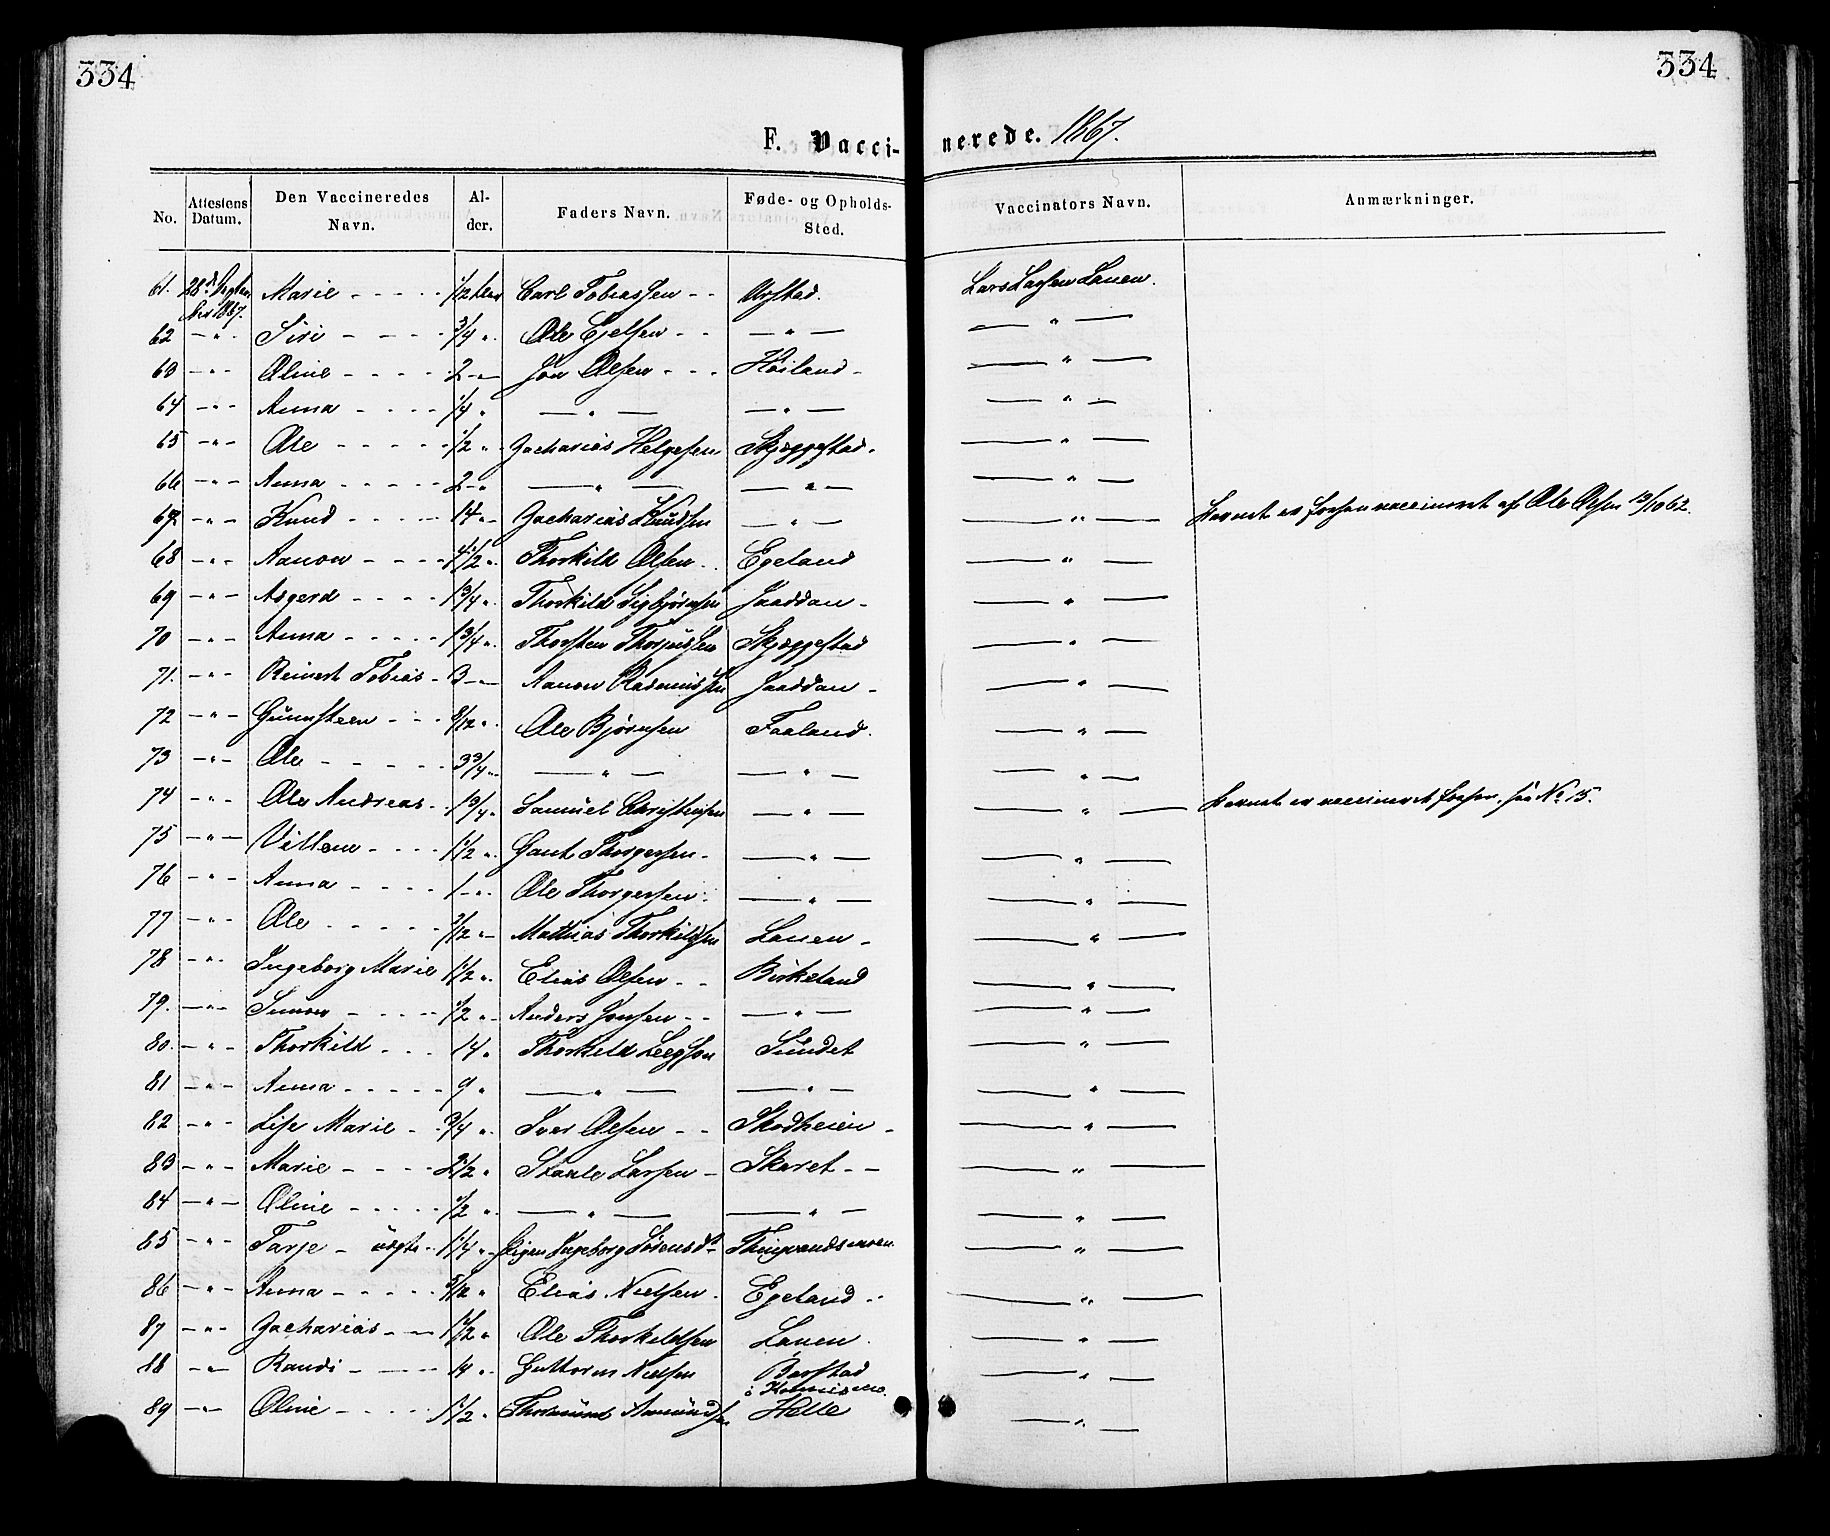 334 334
F. Vacci- nerede. 1867.
No. Attestens Datum. Den Vaccineredes Navn. Al- der. Faders Navn. Føde- og Opholds- Sted. Vaccinators Navn. Anmærkninger.
61. 28de Septem ber 1867. Marie - - - - 1/2 Carl Tobiassen - - Lars Larsen Lauen.
62 -"- Siri - - - - 3/4 " Ole - - — " — — " —
63 -"- Oline - - - - 2 -"- Jon Olsen - - - Høiland - — " —
64 -"- Anna - - - - 1/4 " — " — — " — — " —
65 -"- Ole - - - - - 1/2 " Zacharias Helgesen Skjeggestad. — " —
66 -"- Anna - - - - - 2 -" — " — — " — — " —
67 -"- Knud - - - - 14 " Zacharias Knudsen — " — — " — Barnet er forhen vaccineret af Ole Olsen 13/10 62.
68 -"- Aanon - - - - 4 1/2 " Thorkild Olsen - - Egeland — " —
69 -"- Asgerd - - - - 1 3/4 " Thorkild Sigbjørnsen Jaaddan - — " —
70 -"- Anna - - - - - 1 3/4 " Thorsten Skjeggestad — " —
71. -"- Reinert Tobias - 3 -"- Aanon Jaaddan - — " —
72 -"- Gunsteen - - - 8/12 " Ole Bjørnsen Faaland. — " —
73 -"- Ole - - - - - 3 3/4 " — " — — " — — " —
74 -"- Ole Andreas - - 1 3/4 " Samuel Christensen — " — — " — Barnet er vaccineret forhen, see No 15.
75 -"- Villem - - - - 1 1/2 " Gaut Thorgersen - — " — — " —
76 -"- Anna - - - - 1 -"- Ole Thorgersen — " — — " —
77 -"- Ole - - - - - 1/2 " Mathias Thorkildsen Lauen - — " —
78 -"- Ingeborg Marie 1 1/2 " Elias Olsen - - Birkeland — " —
79. -"- Simon - - - - 1/2 " Anders Jonsen - - — " — — " —
80. -"- Thorkild - - - 14 " Thorkild Sundet — " —
81 -"- Anna - - - - - 9 " — " — — " — — " —
82 -"- Lise Marie - - 3/4 " Iver Olsen - - Stodheien - — " —
83 -"- Marie - - - - 2 1/2 " Staale Larsen - Skaret - - — " —
84 -"- Oline - - - - - 1/2 " — " — — " — — " —
85 -"- Tarje - uægte - 1 1/4 " Pigen Ingeborg Sørensdtr — " —
86 -"- Anna - - - - - 5/12 " Elias Nielsen - Egeland - - — " —
87 -"- Zacharias - - 1 1/2 " Ole Thorkildsen Lauen. — " —
88 -"- Randi - - - - 14 " Guttorm Nielsen — " —
89 -"- Oline - - - - 1 1/2 " Aamundsen Helle — " —